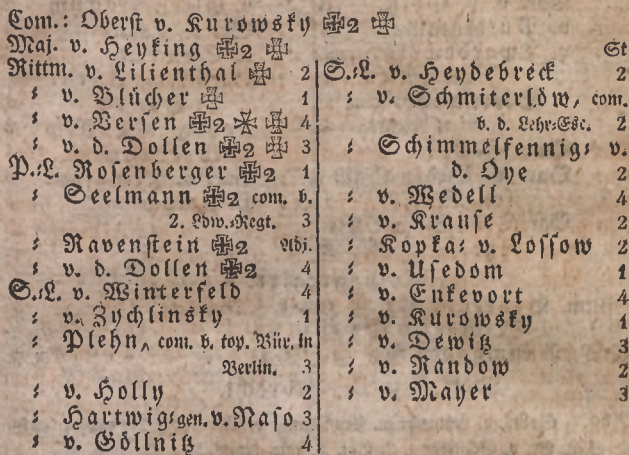 Com.: Oberſt v. Kurowsky ✠2 ✠
Maj. v. Heyking ✠2 ✠
Rittm. v. Lilienthal ✠ 2
⸗ v. Blücher ✠ 1
⸗ v. Verſen ✠2 ✠ ✠ 4
⸗ v. d. Dollen ✠2 ✠ 3
P.⸗L. Roſenberger ✠2 1
⸗ Seelmann ✠2 com. b.
2. Ldw.⸗Regt. 3
⸗ Ravenſtein ✠2 Adj.
⸗ v. d. Dollen ✠2 4
S.⸗L. v. Winterfeld 4
⸗ v. Zychlinsky 1
⸗ Plehn, com. b. top. Bür. in
Berlin. 3
⸗ v. Holly 2
⸗ Hartwig⸗gen. v. Naſo 3
⸗ v. Göllnitz 4
St
S.⸗L. v. Heydebreck 2
⸗ v. Schmiterlöw, com.
b. d. Lehr⸗Esc. 2
⸗ Schimmelfennig⸗ v.
d. Oye 2
⸗ v. Wedell 4
⸗ v. Krauſe 2
⸗ Kopka⸗ v. Loſſow 2
⸗ v. Uſedom 1
⸗ v. Enkevort 4
⸗ v. Kurowsky 1
⸗ v. Dewitz 3
⸗ v. Randow 2
⸗ v. Mayer 3